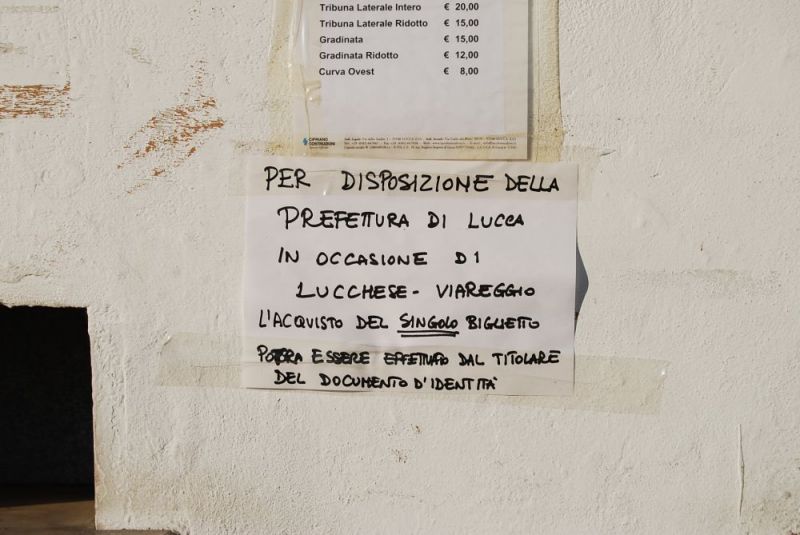 Tribuna Laterale Intero € 20,00
Tribuna Laterale Ridotto € 15,00
Gradinata € 15,00
Gradinata Ridotto € 12,00
Curva Ovest € 8,00
CIPRIANO
COSTRUZIONI
PER DISPOSIZIONE DELLA
PREFETTURA DI LUCCA
IN OCCASIONE DI
LUCCHESE - VIAREGGIO
L'ACQUISTO DEL SINGOLO BIGLIETTO
POTRA ESSERE EFFETTUATO DAL TITOLARE
DEL DOCUMENTO D'IDENTITÀ